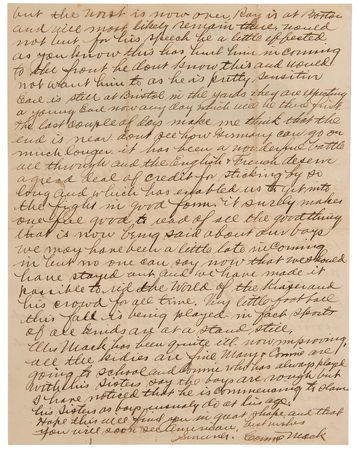 but the worst is now over, Ray is at Boston
and will most likely remain there, would
not but for his speech be a little affected
as you know this has hurt him in coming
to the front he dont know this and would
not want him to as he is pretty sensitive
Earl is still at Bristol in the yards they are expecting
a young Earl now any day which will be the first
The last couple of days make me think that the
end is near dont see how Germany can go on
much longer it has been a wonderful battle
all through and the English & French deserve
a great deal of credit for sticking by so
long and which has enabled us to get into
the fight in good form. it surely makes
one feel good to read of all the good things
that is now being said about our boys
We may have been a little late in coming
in but no one can say now that we should
have stayed out and we have made it
possible to rid the World of the Kaiser and
his crowd for all time, very little foot ball
this fall is being played in fact sports
of all kinds are at a stand still,
Mrs Mack has been quite ill, now improving,
all the kidies are fine Mary & Connie are
going to school and Connie who has always played
with his Sisters say the boys are rough but
I have noticed that he is commencing to slam
his Sisters as boys usualy do at his age.
Hope this will find you in great shape, and that
you will soon
Sincerely, Connie Mack